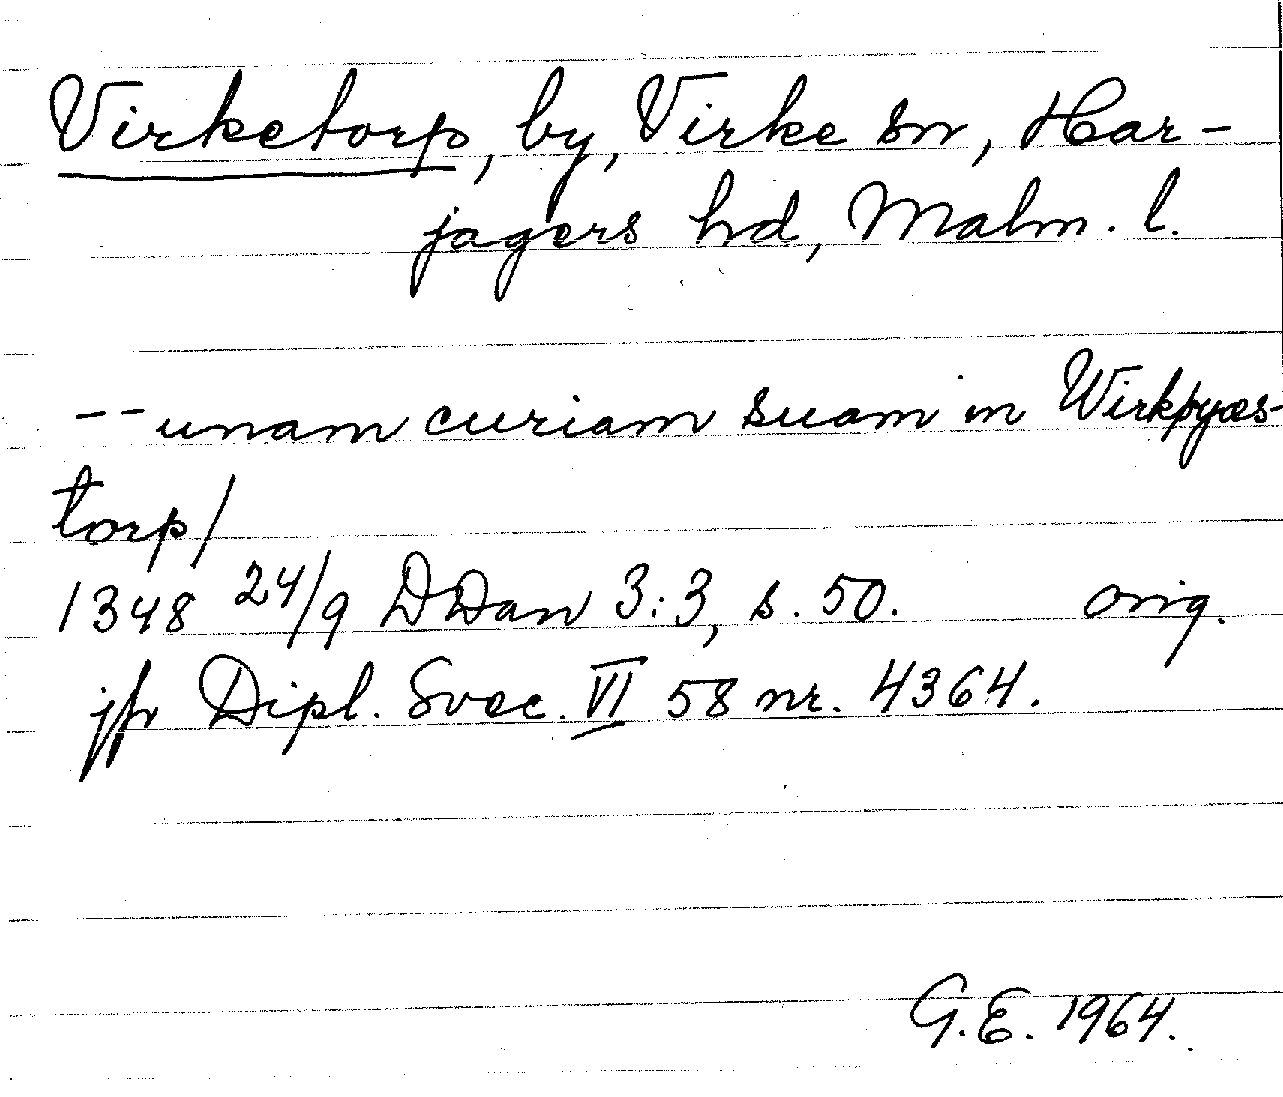 Virketorp, by, Virke sn, Har-
jagers hd, Malm. l.
-- unam curiam suam in Wirkþyæs-
torp/
1348 24/9 DDan 3:3, s. 50. orig.
jfr Dipl. Svec. VI 58 nr. 4364.
G.E. 1964.